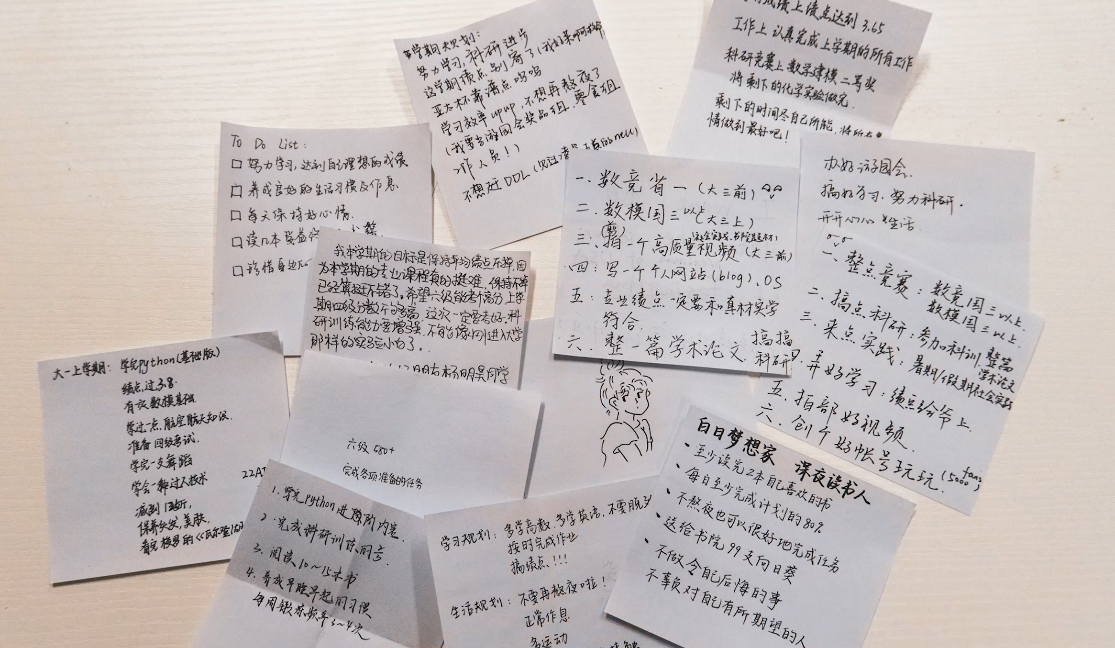 本学期大规划：
努力学习，科研进步
这学期绩点别寄了
亚太杯靠诸点呜呜
学习效率upup，不想再熬夜了
（我要当游园会奖品组、零食组
工作人员！）
不想赶DDL
成绩上绩点达到3.65
工作上 认真完成上学期的所有工作
科研竞赛上数学建模二等奖
将剩下的化学实验做完
剩下的时间尽自己所能，将所有事
情做到最好吧！
To Do List：
□ 努力学习，达到自己理想的成绩
□ 养成良好的生活习惯及作息
□ 每天保持好心情
□ 读几本装益
□ 珍惜身边
一、数竞省一（大三前）
二、数模国三以上（大三上）
三、拍（剪）一个高质量视频（大三前）
四：写一个个人网站（blog），OS
五：专业绩点一定要和真材实学
符合.
六、整一篇学术论文 搞搞
科研
办好游园会.
搞好学习，努力科研.
开开心心生活
一、整点竞赛：数竞国三以上.
数模国三以上.
二、搞点科研：参加科训，整篇
学术论文
三、来点实践：暑期/假期社会实践
四、弄好学习：绩点给爷上
五、拍部好视频
六、创个好帐号玩玩（5000 fans）
我本学期的目标是保持平均绩点不掉，因
为本学期的专业课程真的挺难，保持不掉
已经算挺不错了。希望六级能考高分，上学
期四级分数不够高，这次一定要考好。科
研训练能力要增强，不能像刚进大学
那样的实验小白了。
大一上学期：学完python（基础版）
绩点，过3.8.
有点数模基础
学过一点，航空航天知识.
准备四级考试.
学完一支舞蹈
学会一种过人技术
减到130斤，
保养头发，美肤.
六级 580+
完成各项准备的任务
1. 学完Python进阶阶内容.
2. 完成科研训练同音
3. 阅读10～15本书
4. 养成早睡早起的习惯
每周锻炼频率3～4次
学习规划：多学高数，多学英语，不要脱
按时完成作业
搞绩点!!!
生活规划：不要再熬夜啦！
正常作息
多运动
白日梦想家 深夜读书人
· 至少读完2本自己喜欢的书
· 每日至少完成计划的80%
· 不熬夜也可以很好地完成任务
· 送给书院99支向日葵
· 不做令自己后悔的事
· 不辜负对自己有所期望的人